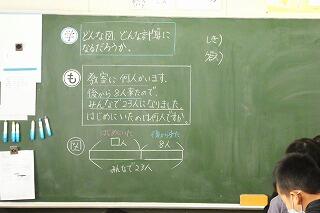 学 どんな図、どんな計算に
なるだろうか。
も 教室に何人かいます。
後から8人来たので、
みんなで23人になりました。
はじめにいたのは何人ですか。
図 はじめにいた 後から来た
□人 8人
みんなで23人
しき)
答え)